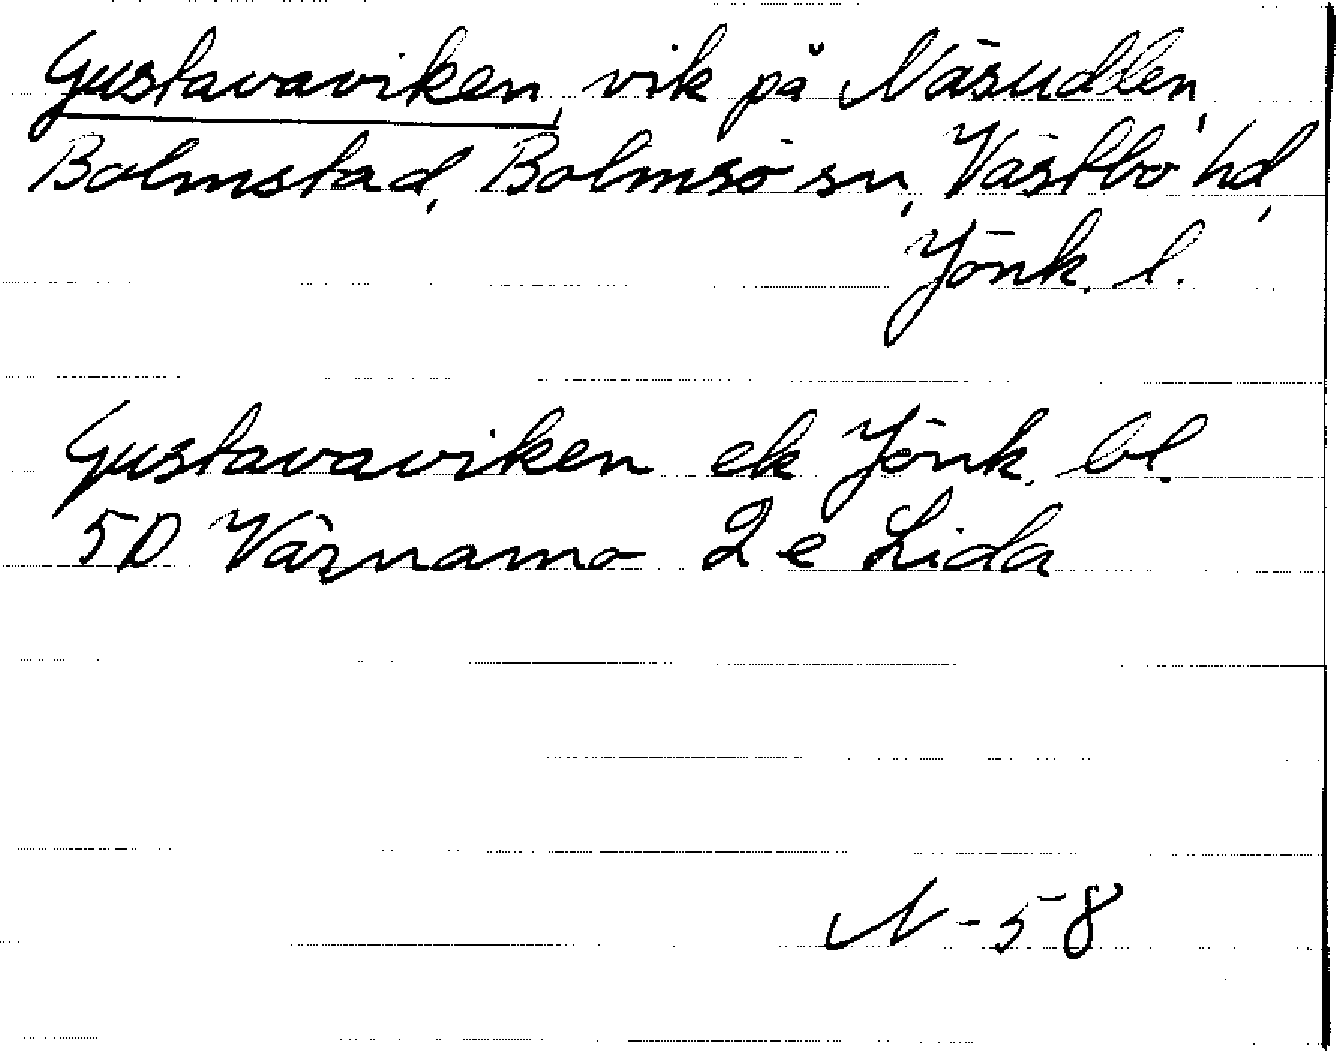 Gustavaviken, vik på Näsudden,
Bolmstad, Bolmsö sn, Västbo hd,
Jönk. l.
Gustavaviken ek Jönk. bl.
5D Värnamo 2 e Lida
N-58